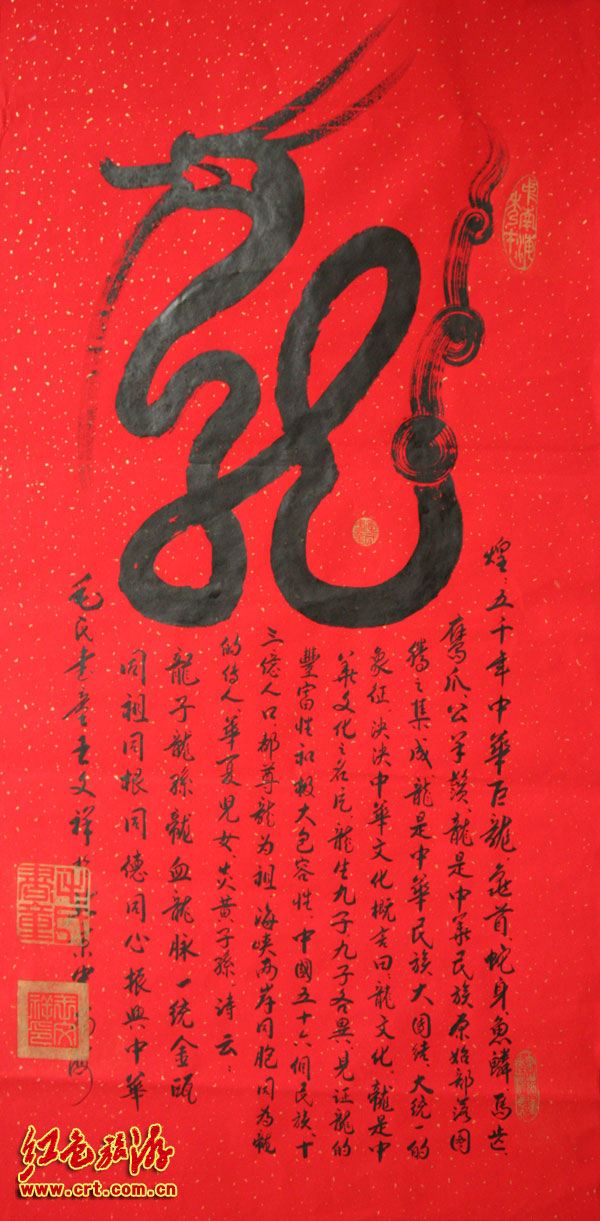 龍
煌煌五千年中華巨龍、龜首、蛇身、魚鱗、馬齒、
鷹爪、公羊鬚、龍是中華民族原始部落圖
騰之集成、龍是中華民族大團結、大統一的
象征、泱泱中華文化概言曰、龍文化、龍是中
華文化之名片、龍生九子九子各異、見証龍的
豐富性和極大包容性、中國五十六個民族、十
三億人口都尊龍為祖、海峽兩岸同胞同為龍
的傳人、華夏兒女、炎黃子孫、詩云：
龍子龍孫龍血龍脈一統金甌
同祖同根同德同心振興中華
毛氏書童王文祥於京中海
毛氏書童
王文祥印
紅色旅游
www.crt.com.cn